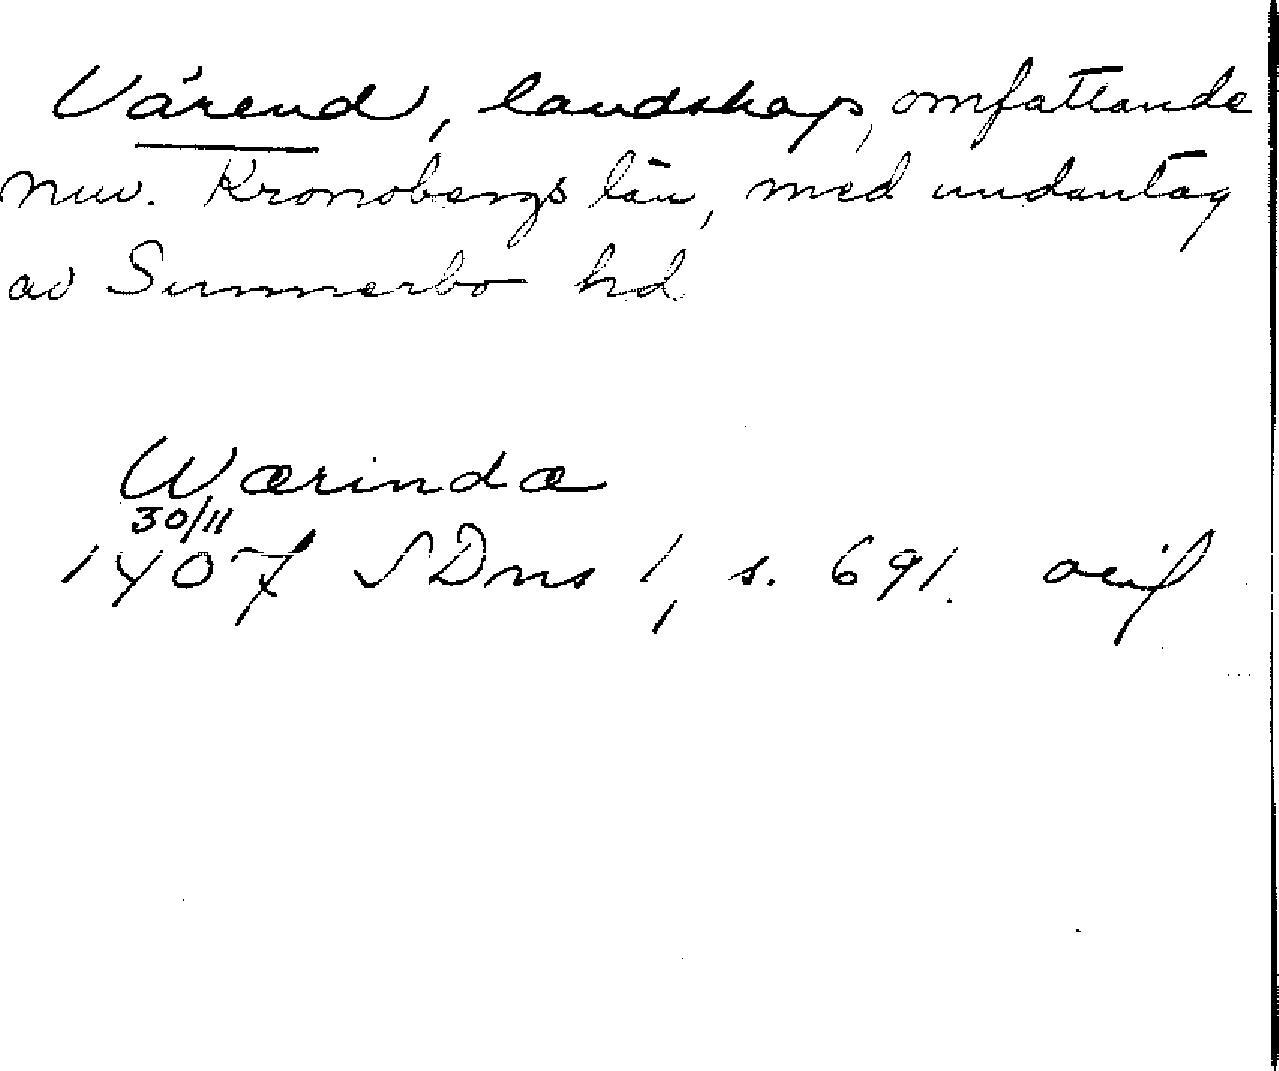 Värend, landskap, omfattande
nuv. Kronobergs län, med undantag
av Sunnerbo hd.
Wærindæ
30/11
1407 SDns 1, s. 691. avif